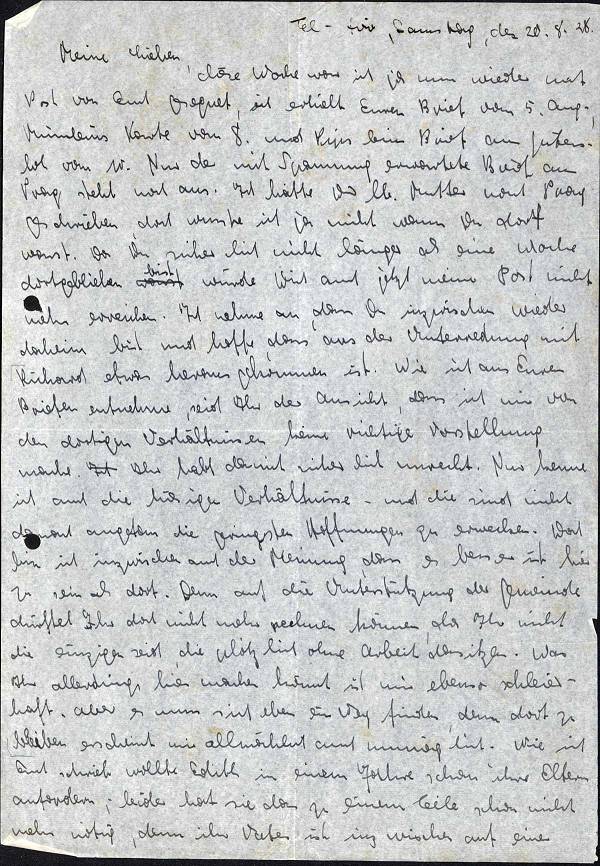 Tel-Aviv, Samstag, den 20.8.38.
Meine Lieben,
diese Woche war ich ja nun wieder mit
Post von Euch gesegnet, ich erhielt Euren Brief vom 5. Aug.,
Karte vom 8. und Brief am
vom 10. Nur der mit Spannung erwartete Brief aus
Prag steht noch aus. Ich hatte Dir lb. Mutter nach Prag
geschrieben doch wusste ich ja nicht wann Du dort
warst. Da Du sicherlich nicht länger als eine Woche
dortgeblieben bist würde Dich auch jetzt meine Post nicht
mehr erreichen. Ich nehme an, dass Du inzwischen wieder
daheim bist und hoffe, dass aus der Unterredung mit
Richard etwas herausgekommen ist. Wie ich aus Euren
Briefen entnehme, seid Ihr der Ansicht, dass ich mir von
den dortigen Verhältnissen keine richtige Vorstellung
mache. Ihr habt damit sicherlich unrecht. Nur kenne
ich auch die hiesigen Verhältnisse - und die sind nicht
danach angetan die geringsten Hoffnungen zu erwecken. Doch
bin ich inzwischen auch der Meinung dass es besser ist hier
zu sein als dort. Denn auf die Unterstützung der Gemeinde
dürftet Ihr dort nicht mehr rechnen können, da Ihr nicht
die einzigen seid die plötzlich ohne Arbeit dasitzen. Was
Ihr allerdings hier machen könnt ist mir ebenso schleier-
haft. Aber es muss sich eben ein Weg finden, denn dort zu
bleiben erscheint mir allmählich auch unmöglich. Wie ich
Euch schrieb wollte Edith in einem Jahre schon ihre Eltern
anfordern; leider hat sie das zu einem Teile schon nicht
mehr nötig, denn ihr Vater ist inzwischen auf einer